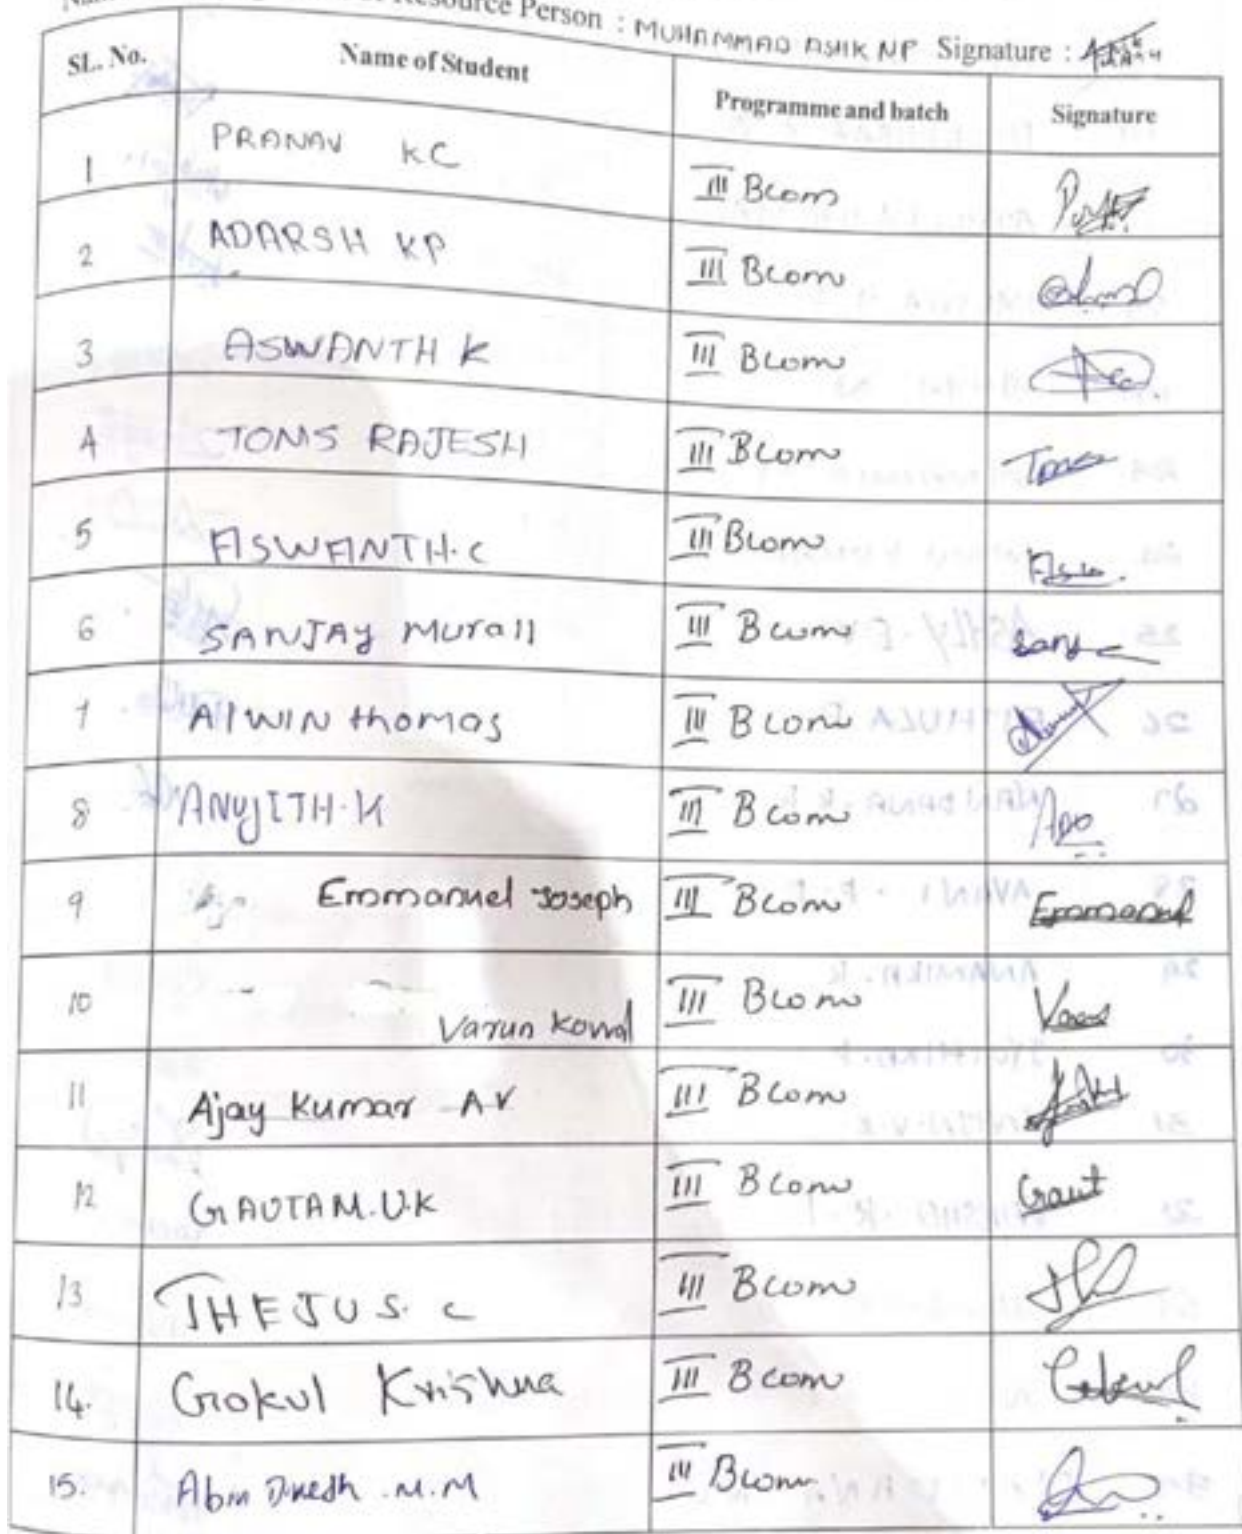 Resource Person : MUHAMMAD ASHIK NP Signature :
SL. No. Name of Student Programme and batch Signature
1 PRANAV KC III Bcom
2 ADARSH KP III Bcom
3 ASWANTH K III Bcom
4 TOMS RAJESH III Bcom Toms
5 ASWANTH.C III Bcom
6 SANJAY Murali III Bcom
7 Alwin thomas III Bcom
8 ANUJITH.K III Bcom
9 Emmanuel Joseph III Bcom Emmanuel
10 Varun III Bcom
11 Ajay Kumar A.V III Bcom
12 GAUTAM.U.K III Bcom Gaut
13 THEJUS. C III Bcom
14. Gokul Krishna III Bcom Gokul
15. Abin Dinesh .M.M III Bcom